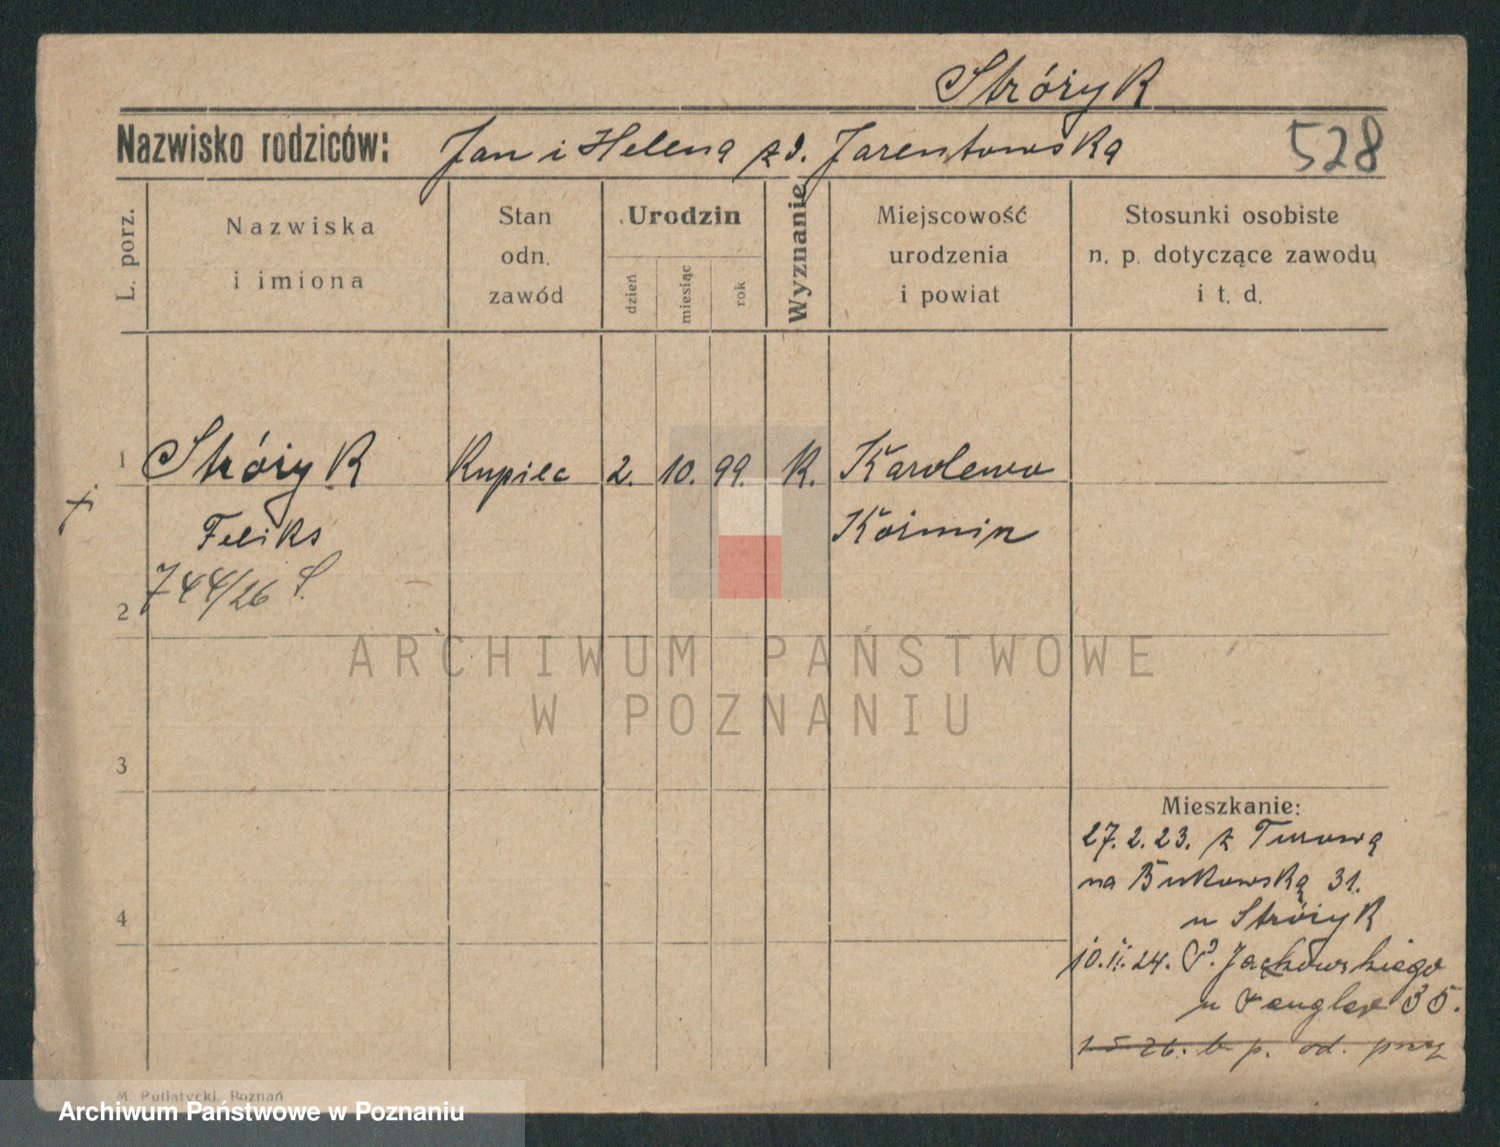 Stróżyk
Nazwisko rodziców: Jan i Helena zd. Jarentowska 528
L. porz.
Nazwiska
i imiona
Stan
odn.
zawód
Urodzin
dzień
miesiąc
rok
Wyznanie
Miejscowość
urodzenia
i powiat
Stosunki osobiste
n. p. dotyczące zawodu
i t. d.
1 Stróżyk Kupiec 2. 10. 99. K. Karolewo
Feliks Koźmin
744/26 S.
2
3
4
ARCHIWUM PAŃSTWOWE
W POZNANIU
Mieszkanie:
27.2.23. z
na Bukowską 31.
u Stróżyk
10.II.24. P. Jackowskiego
u 35.
26. b. p. od.
M. Putiatycki, Poznań
Archiwum Państwowe w Poznaniu